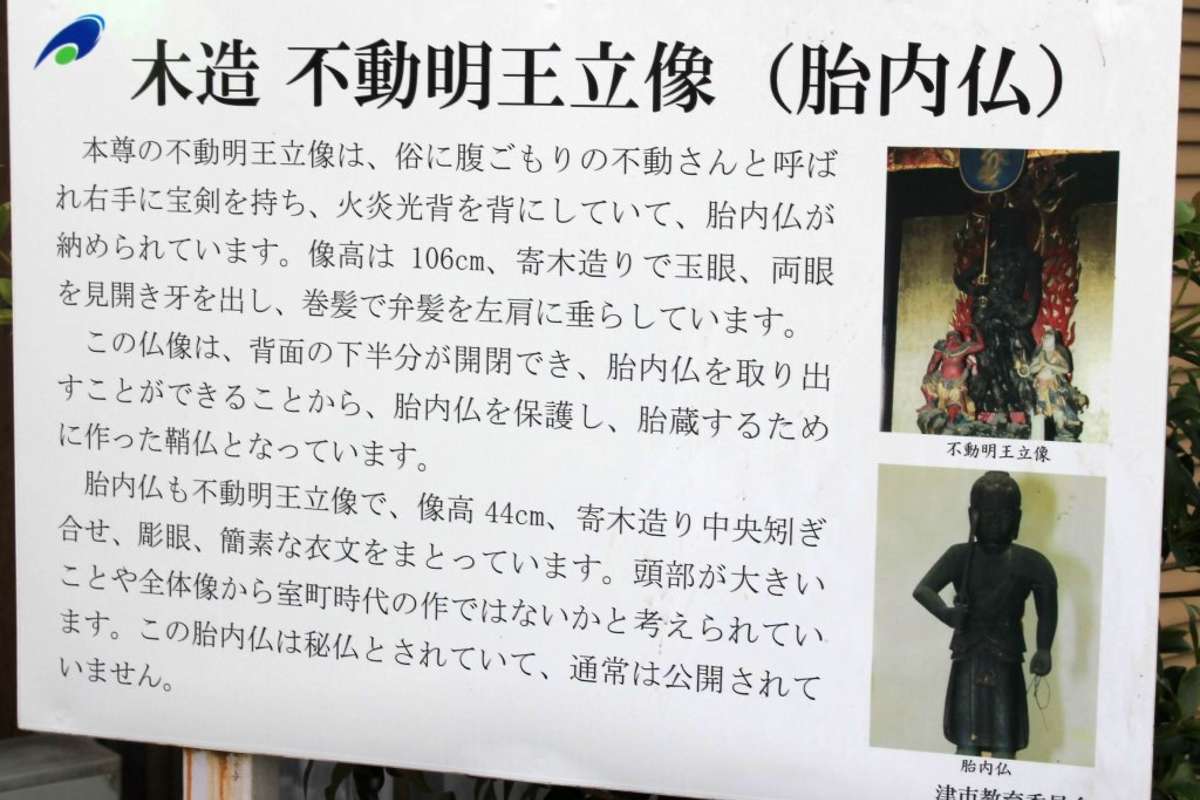 木造 不動明王立像（胎内仏）
本尊の不動明王立像は、俗に腹ごもりの不動さんと呼ば
れ右手に宝剣を持ち、火炎光背を背にしていて、胎内仏が
納められています。像高は 106cm、寄木造りで玉眼、両眼
を見開き牙を出し、巻髪で弁髪を左肩に垂らしています。
この仏像は、背面の下半分が開閉でき、胎内仏を取り出
すことができることから、胎内仏を保護し、胎蔵するため
に作った鞘仏となっています。
胎内仏も不動明王立像で、像高 44cm、寄木造り中央矧ぎ
合せ、彫眼、簡素な衣文をまとっています。頭部が大きい
ことや全体像から室町時代の作ではないかと考えられてい
ます。この胎内仏は秘仏とされていて、通常は公開されて
いません。
不動明王立像
胎内仏
津市教育委員会